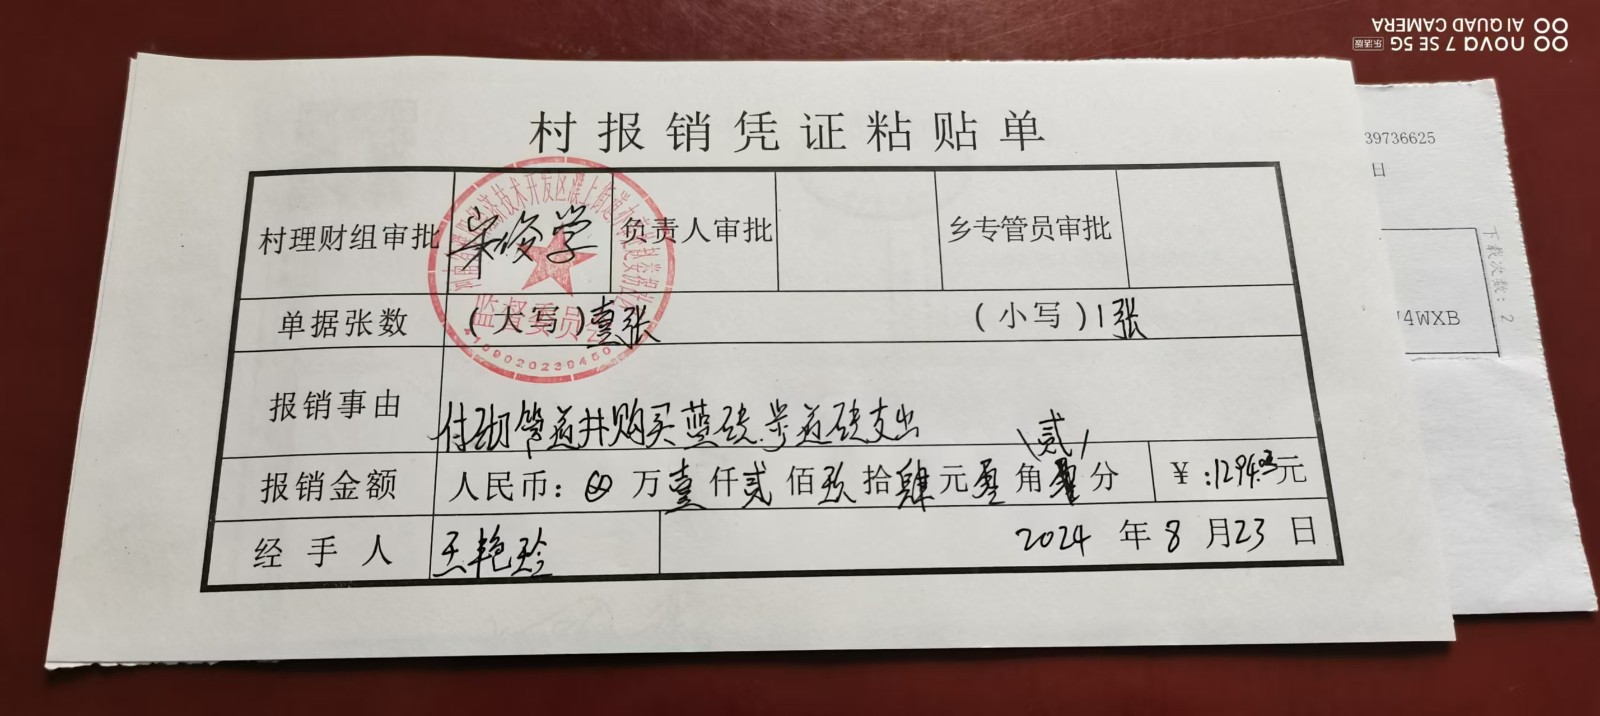 村报销凭证粘贴单
村理财组审批 宋俊学 负责人审批 乡专管员审批
单据张数 (大写)壹张 (小写)1张
报销事由 付砌管道井购买蓝砖.步道砖支出
贰
报销金额 人民币: 万壹仟贰佰玖拾肆元零角 分 ¥:1294.02元
经手人 王艳玲 2024年8月23日
监督委员会
39736625
日
下载次数:2
4WXB
nova 7 SE 5G 乐活版
AI QUAD CAMERA